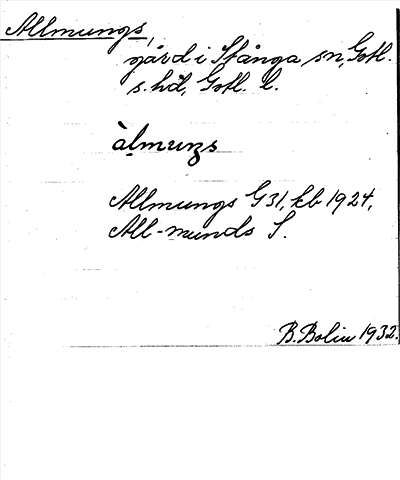 Allmungs,
gård i Stånga sn, Gotl.
s. hd, Gotl. l.
àlmuŋs
Allmungs G 31, kb 1924,
All-munds S.
B. Bolin 1932.